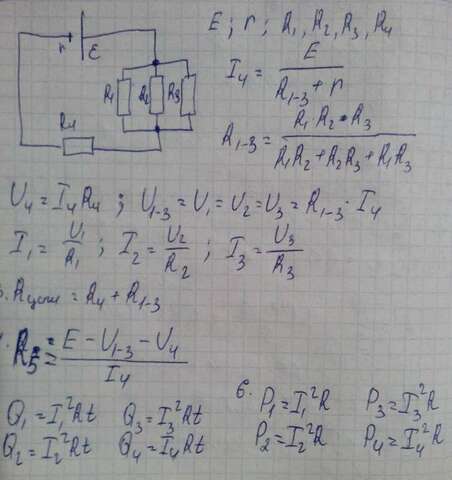 E ; r ; R₁, R₂, R₃, R₄
r ε
R₁ R₂ R₃
R₄
I₄ = E / (R₁₋₃ + r)
R₁₋₃ = R₁ R₂ • R₃ / (R₁R₂ + R₂R₃ + R₁R₃)
U₄ = I₄R₄ ; U₁₋₃ = U₁ = U₂ = U₃ = R₁₋₃ · I₄
I₁ = U₁ / R₁ ; I₂ = U₂ / R₂ ; I₃ = U₃ / R₃
3. Rцепи = R₄ + R₁₋₃
R₅ = (E - U₁₋₃ - U₄) / I₄
Q₁ = I₁²Rt Q₃ = I₃²Rt 6. P₁ = I₁²R P₃ = I₃²R
Q₂ = I₂²Rt Q₄ = I₄Rt P₂ = I₂²R P₄ = I₄²R